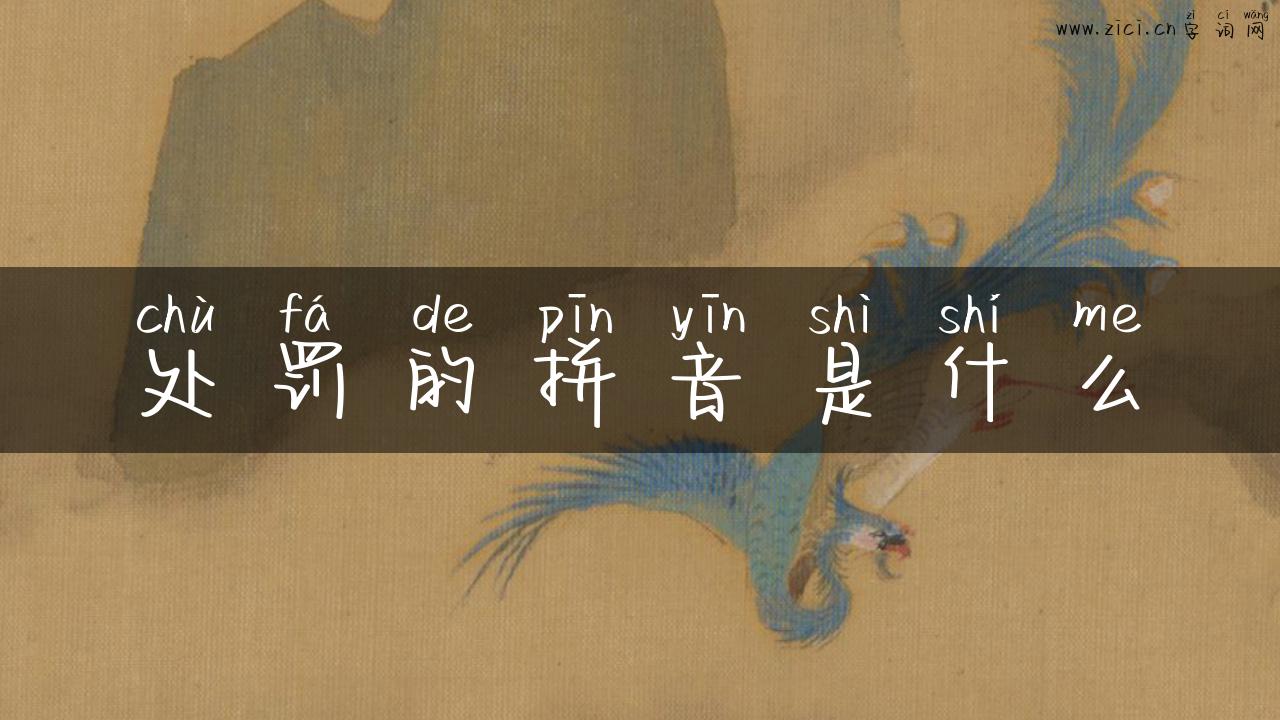 zì cí wǎng
www.zici.cn字词网
chù fá de pīn yīn shì shí me
处罚的拼音是什么